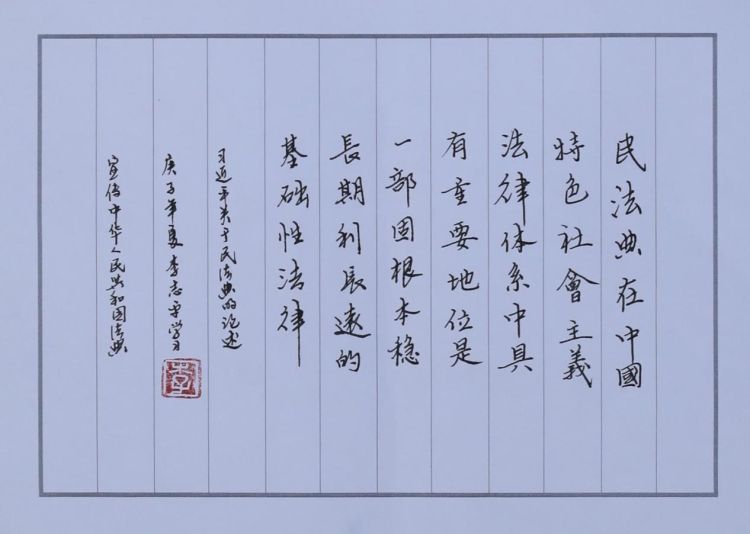 民法典在中國
特色社會主義
法律体系中具
有重要地位是
一部固根本稳
長期利長遠的
基础性法律
习近平关于民法典的论述
庚子年夏李志平学习
宣传中华人民共和国法典
李